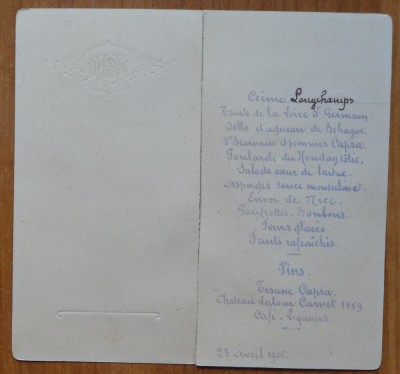 Crème Longchamps
Truite de la Loire St Germain
Selle d'agneau de Béhague
Sce Béarnaise Pommes Capsa
Poularde du Houdan rôtie
Salade cœur de laitue
Asperges sauce mousseline
Envoi de Nice
Gaufrettes - Bonbons
Fours glacés
Fruits rafraîchis
Vins
Tisane Capsa
Chateau Latour Carnet 1869
Café - Liqueurs
23 avril 1906